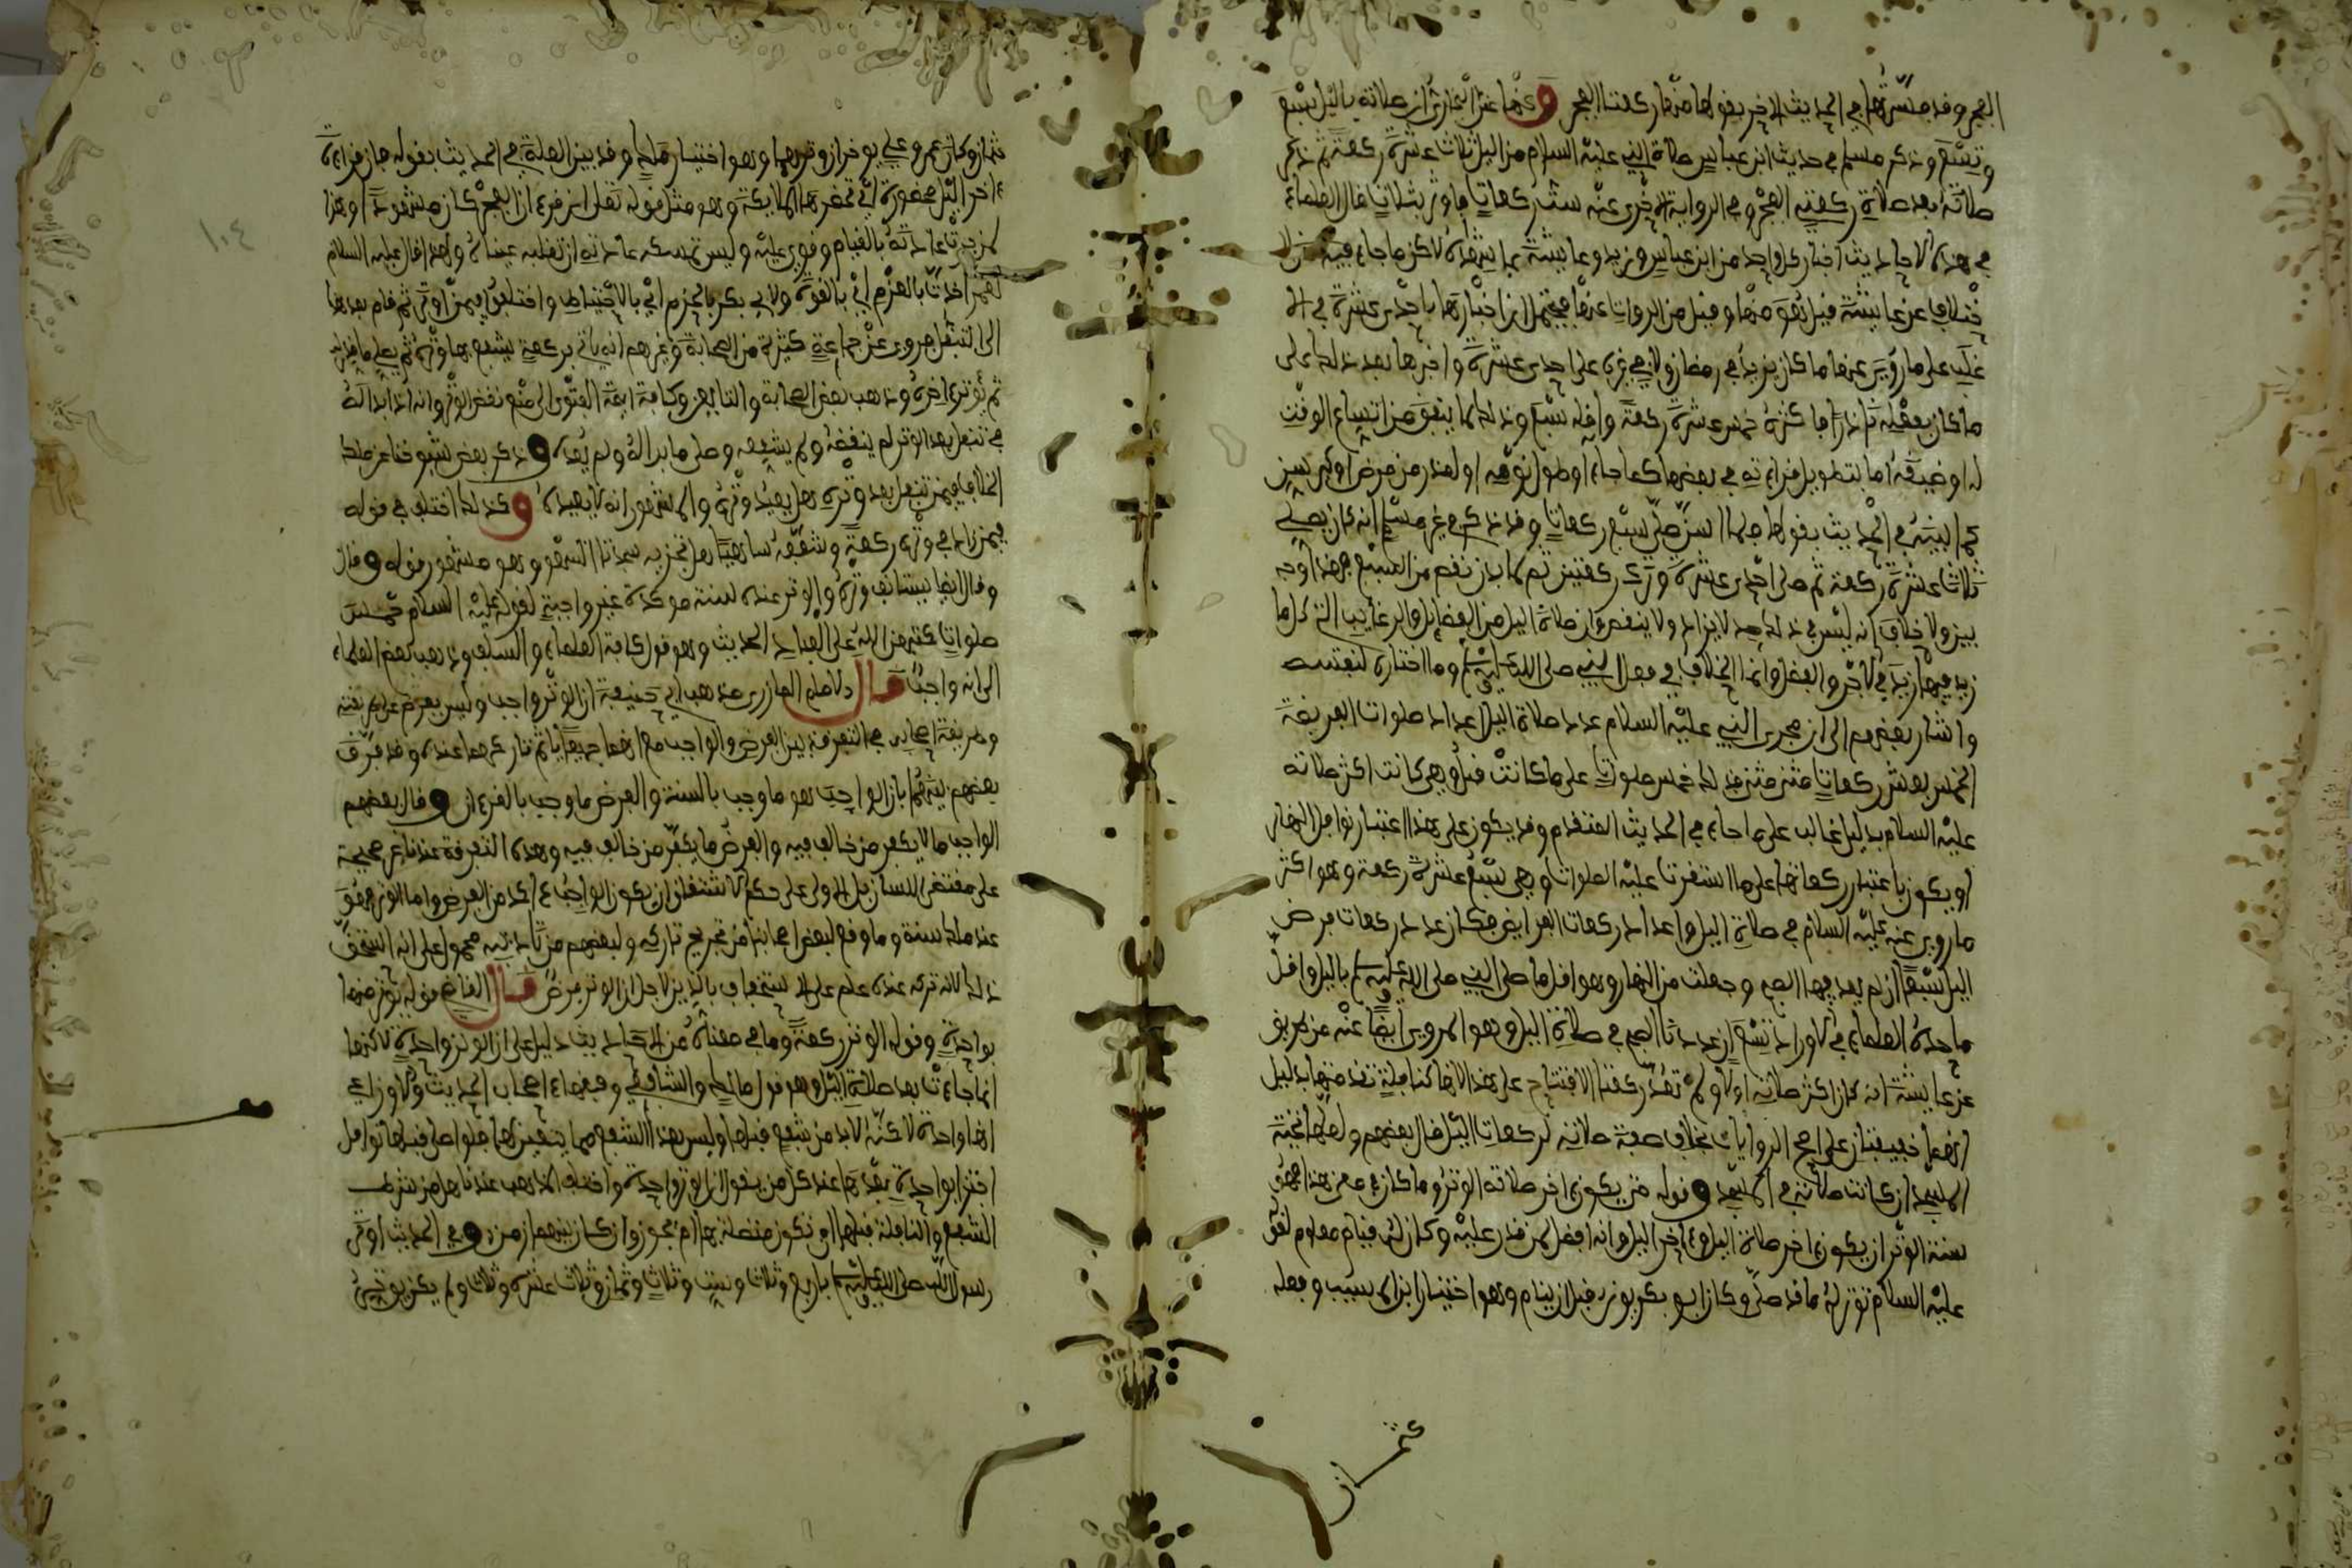 الفجر وقد فسرتها في الحديث الاخر بقولها منها ركعتا الفجر وعنها عند البخاري ان صلاته بالليل بسبع
وتسع وذكر مسلم في حديث ابن عباس صلاة النبي عليه السلام من الليل ثلاث عشرة ركعة ثم ذكر
صلاته بعد صلاة ركعتي الفجر وفي الرواية الاخرى عنه ست ركعات واوتر بثلاث قال العلماء
في هذه الاحاديث اخبار كل واحد من ابن عباس وزيد وعايشة بما شاهده لاكن ما جاء فيه من الا
ختلاف عن عايشة قيل هو منها وقيل من الرواة عنها فيحتمل ان اخبارها باحدى عشرة في الا
غلب على ما روي عنها ما كان يزيد في رمضان ولا في غيره على احدى عشرة واخبرها بعد ذلك على
ما كان يفعله نادرا فاكثره خمس عشرة ركعة واقله سبع وذلك لما يتفق من اتساع الوقت
له او ضيقه اما بتطويل قراءته في بعضها كما جاء او طول نومه او لعذر من مرض او كبر سن
كما بينته في الحديث بقولها فلما اسن صلى سبع ركعات وقد ذكر في غير مسلم انه كان يصلي
ثلاث عشرة ركعة ثم صلى احدى عشرة وترك ركعتين ثم كان لا ينقص من التسع فهذا اوجه
بين ولا خلاف انه ليس في ذلك حد لا يزاد ولا ينقص وان صلاة الليل من الفضائل والرغايب التي كلما
زيد فيها زيد في الاجر والفضل وانما الخلاف في فعل النبي صلى الله عليه وسلم وما اختاره لنفسه
واشار بعضهم الى ان مجرى النبي عليه السلام عدد صلاة الليل اعداد صلوات الفريضة
الخمس بعشر ركعات مثنى مثنى فذلك خمس صلوات على ما كانت قبل وهي كانت اكثر صلاته
عليه السلام بدليل غالب على ما جاء في الحديث المتقدم وقد يكون على هذا اعتبار نوافل النهار
او يكون باعتبار ركعاتها على ما استقرت عليه الصلوات وهي سبع عشرة ركعة وهو اكثر
ما روي عنه عليه السلام في صلاة الليل واعداد ركعات الفرايض فكان عدد ركعات فرض
الليل سبعا ان لم يعد فيها الصبح وجعلت من النهار وهو اقل ما صلى النبي صلى الله عليه وسلم بالليل واقل
ما حده العلماء في الاوراد تسع ان عددنا الصبح في صلاة الليل وهو المروي ايضا عنه عن طريق
عن عايشة انه كان اكثر صلاته اولا ولم تعد ركعتا الافتتاح على هذا لانها كنافلة تقدمتها بدليل
انهما خفيفتان على اصح الروايات بخلاف صفة صلاته لركعات الليل قال بعضهم ولعلها تحية
المسجد ان كانت صلاته في المسجد وقوله من يكون اخر صلاته الوتر وما كان في معنى هذا فهو
سنة الوتر ان يكون اخر صلاة الليل واخر الليل وانه افضل لمن قدر عليه وكان له قيام معلوم لقوله
عليه السلام توتر له ما قد صلى وكان ابو بكر يوتر قبل ان ينام وهو اختيار ابن المسيب وفعله
عثمان
عثمان وكان عمر وعلي يوخران وترهما وهو اختيار مالك وقد بين العلة في الحديث بقوله فان قراءة
ءاخر الليل محضورة اي تحضرها الملايكة وهو مثل قوله تعلى ان قرءان الفجر كان مشهودا وهذا
لمن جرت عادته بالقيام وقوي عليه وليس يمسكه عادته ان تغلبه عيناه ولهذا قال عليه السلام
لعمر اخذت بالعزم اي بالقوة ولابي بكر بالحزم اي بالاحتياط واختلفوا فيمن اوتر ثم قام بعدها
الى التنفل فروي عن جماعة كثيرة من الصحابة وغيرهم انه ياتي بركعة يشفع بها وتره ثم يصلي ما بدا له
ثم يوتر اخره وذهب بعض الصحابة والتابعين وكافة ايمة الفتوى الى منع نقض الوتر وانه اذا بدا له
في تنفل بعد الوتر لم ينقضه ولم يشفعه وصلى ما بدا له ولم يعد وذكر بعض شيوخنا عن مالك
الخلاف فيمن تنفل بعد وتره هل يعيد وتره والمشهور انه لا يعيده وكذلك اختلف في قوله
فيمن زاد في وتره ركعة وشفعه ساهيا هل تجزيه سجدتا السهو وهو مشهور قوله وقال
وقال ايضا يستانف وتره والوتر عنده سنة موكدة غير واجبة لقوله عليه السلام خمس
صلوات كتبهن الله على العباد الحديث وهو قول كافة العلماء والسلف وذهب بعض العلماء
الى انه واجب قال الامام المازري مذهب ابي حنيفة ان الوتر واجب وليس بفرض على طريقته
وطريقة اصحابه في التفرقة بين الفرض والواجب مع انهما جميعا ياثم تاركهما عنده وقد فرق
بعضهم بينهما بان الواجب هو ما وجب بالسنة والفرض ما وجب بالقرءان وقال بعضهم
الواجب ما لا يكفر من خالف فيه والفرض ما يكفر من خالف فيه وهذه التفرقة عندنا غير صحيحة
على مقتضى اللسان بل الاولى على حكم الاشتقاق ان يكون الواجب ءاكد من الفرض واما الوتر فهو
عند مالك سنة وما وقع لبعض اصحابنا من تجريح تاركه ولبعضهم من تاديبه محمول على انه استخف
ذلك لان تركه عنده علم على الاستخفاف بالدين لا لاجل ان الوتر فرض قال القاضي قوله يوتر منها
بواحدة وقوله الوتر ركعة وما في معناه من الاحاديث دليل على ان الوتر واحدة لاكنها
انما جاءت بعد صلاة الليل وهو قول مالك والشافعي وفقهاء اصحاب الحديث والاوزاعي
انها واحدة لاكنه لا بد من شفع قبلها وليس هذا الشفع مما يتعين لها فلو صلى قبلها نوافل
اجتزا بواحدة بعدها عند كل من يقول ان الوتر واحدة واختلف المذهب عندنا هل من شرط
الشفع والنافلة قبلها ان تكون متصلة بها ام يجوز وان كان بينهم ازمن وفي الحديث اوتر
رسول الله صلى الله عليه وسلم باربع وثلاث وست وثلاث وثمان وثلاث وعشر وثلاث ولم يكن يوتر
١٠٤